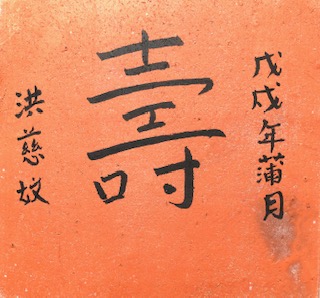 戊戌年蒲月
壽
洪慈妏